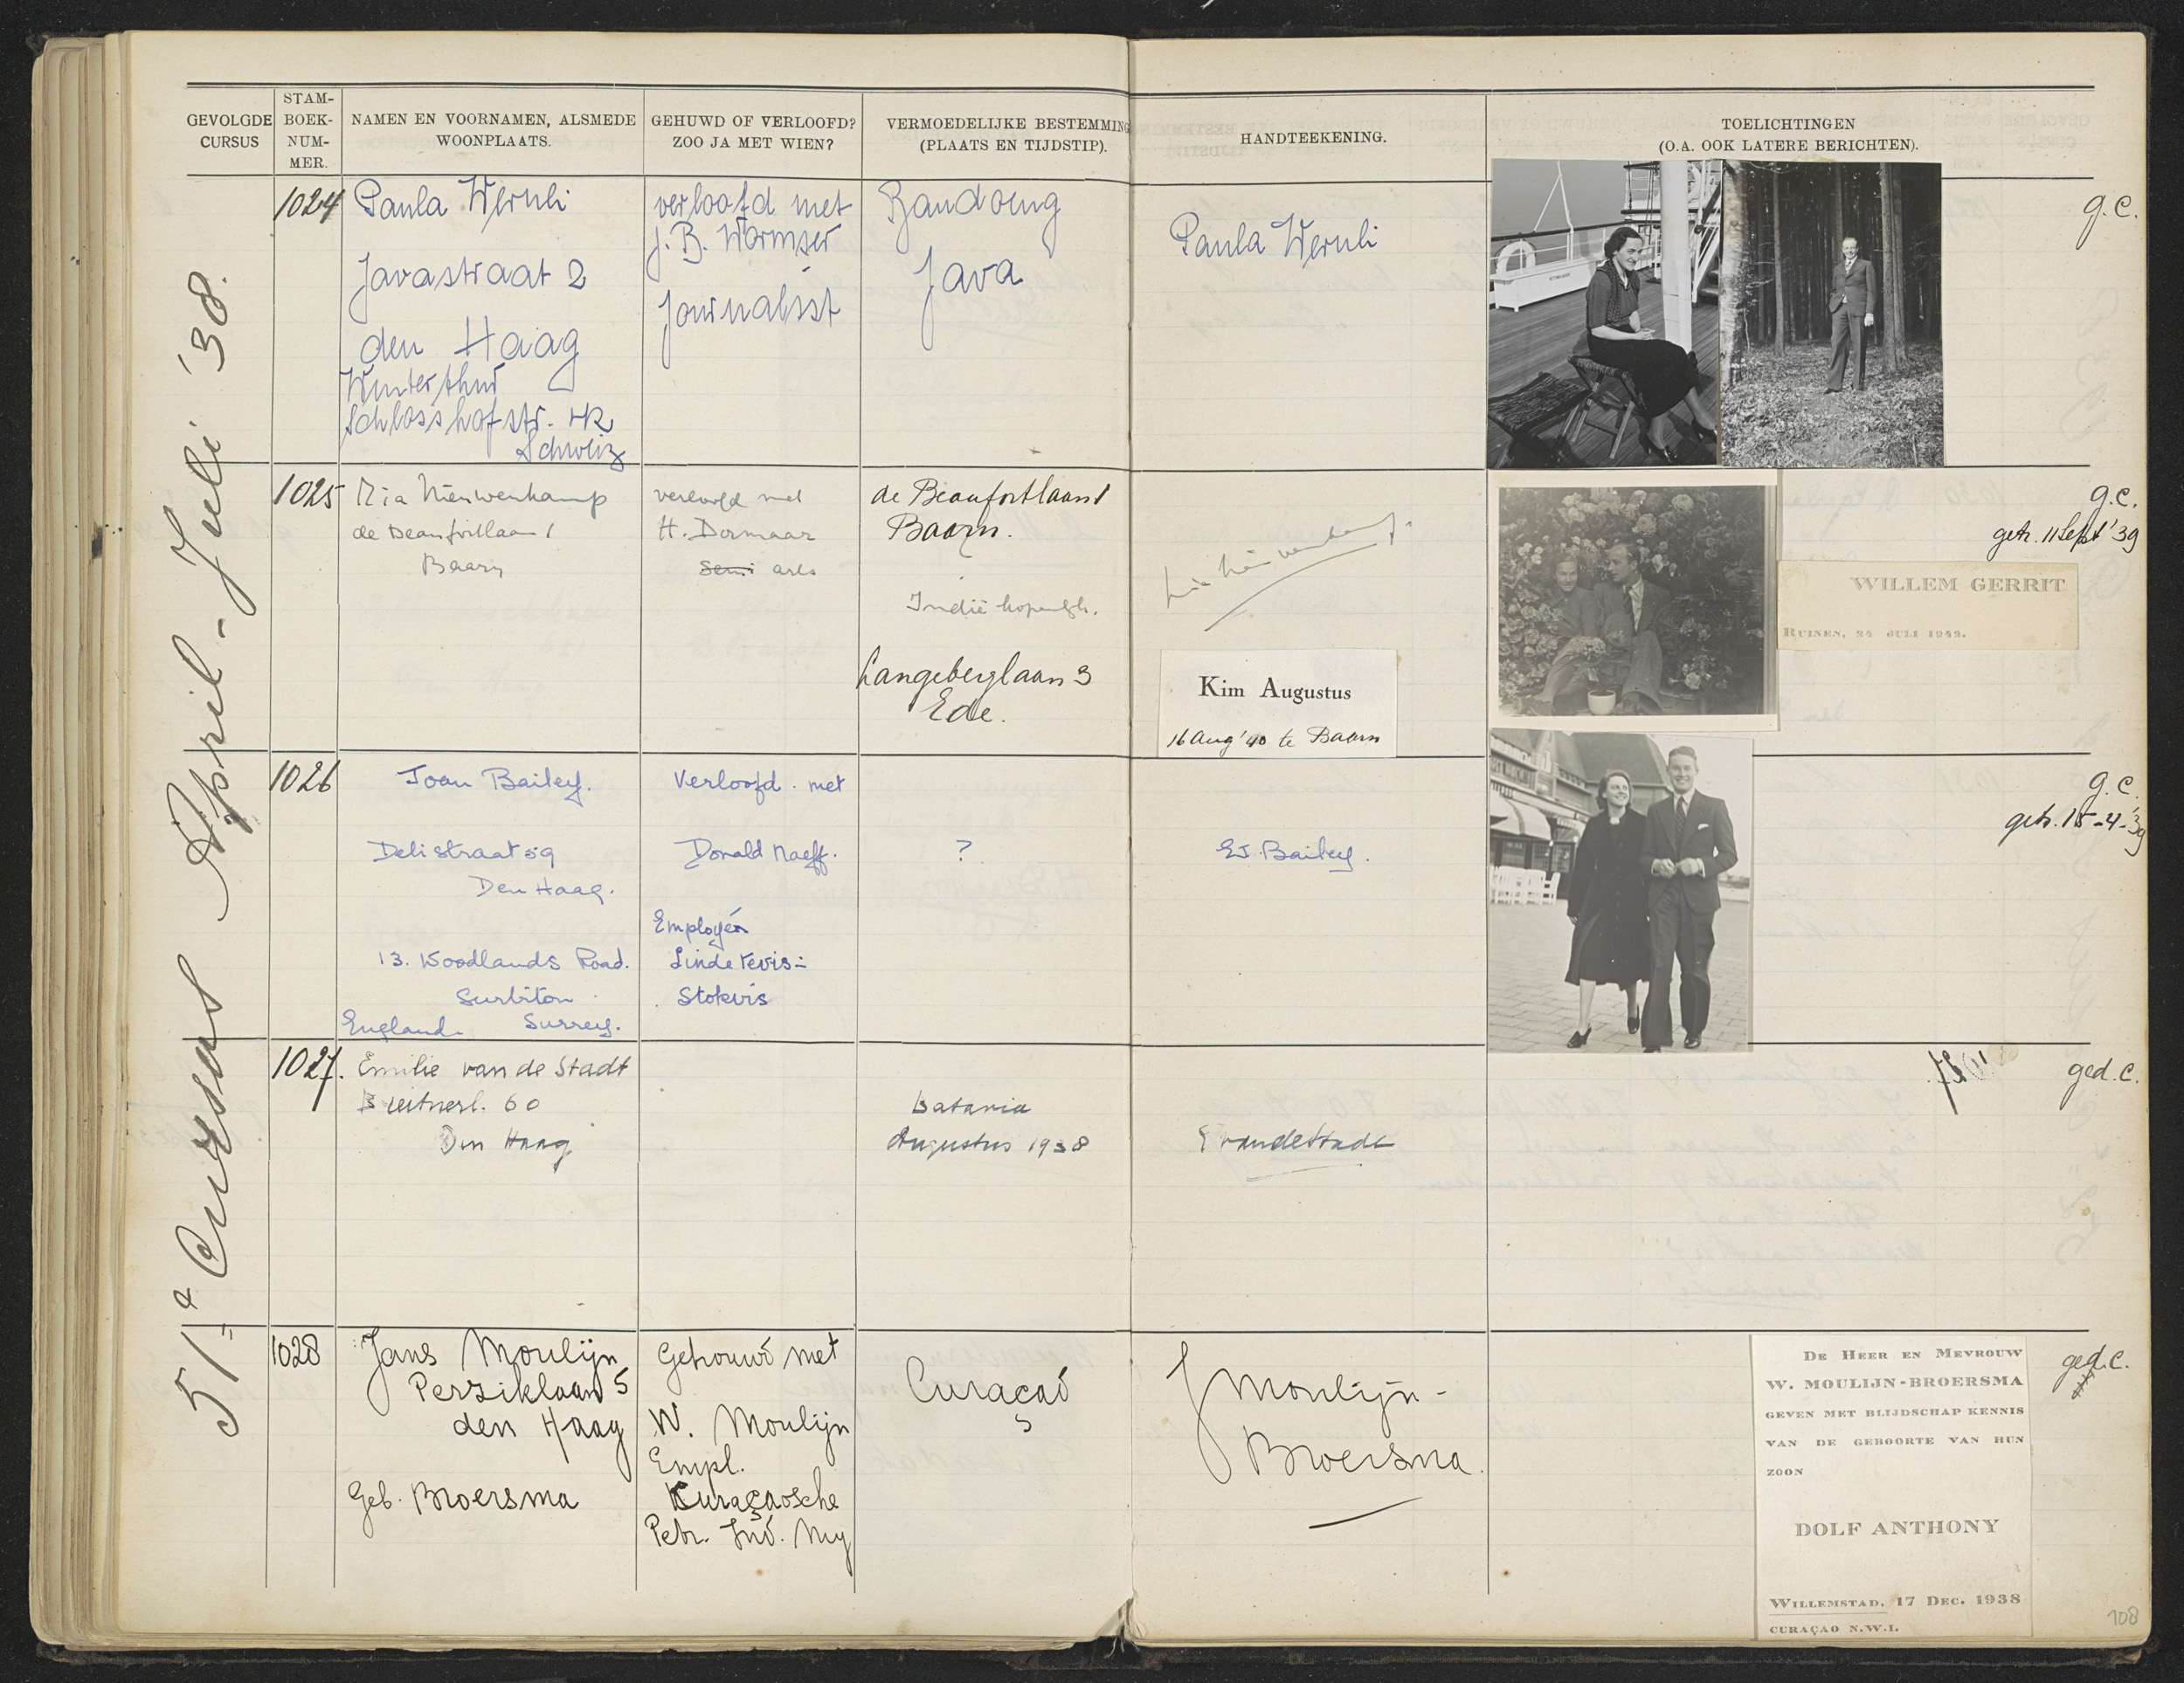 GEVOLGDE CURSUS
STAM-BOEK-NUM-MER.
NAMEN EN VOORNAMEN, ALSMEDE WOONPLAATS.
GEHUWD OF VERLOOFD? ZOO JA MET WIEN?
VERMOEDELIJKE BESTEMMING (PLAATS EN TIJDSTIP).
HANDTEEKENING.
TOELICHTINGEN (O.A. OOK LATERE BERICHTEN).
51e Cursus April - Juli '38.
1024
Paula Wernli
Javastraat 2
den Haag
Winterthur
Schlosshofstr. 42
Schweiz
verloofd met
J. B. Wormser
Journalist
Bandoeng
Java
Paula Wernli
g.c.
1025
Mia Nieuwenkamp
de Beaufortlaan 1
Baarn
verloofd met
H. Dormaar
Semi arts
de Beaufortlaan 1
Baarn.
Indië hopenlijk.
Langeberglaan 3
Ede.
Kim Augustus
16 Aug '40 te Baarn
g.c.
getr. 11 Sept '39
WILLEM GERRIT
RUINEN, 24 JULI 1942.
1026
Joan Bailey.
Delistraat 59
Den Haag.
13. Woodlands Road.
Surbiton
England. Surrey.
Verloofd met
Donald Naeff.
Employé
Lindeteves-
Stokvis
?
EJ. Bailey.
g.c.
getr. 15-4-'39
1027.
Emilie van de Stadt
Breitnerl. 60
Den Haag
Batavia
Augustus 1938
E vandeStadt
ged. c.
1028
Jans Moulijn
Perziklaan 5
den Haag
Geb. Broersma
Getrouwd met
W. Moulijn
Empl.
Curaçaosche
Petr. Ind. My
Curaçao
J Moulijn-
Broersma.
ged. c.
DE HEER EN MEVROUW
W. MOULIJN-BROERSMA
GEVEN MET BLIJDSCHAP KENNIS
VAN DE GEBOORTE VAN HUN
ZOON
DOLF ANTHONY
WILLEMSTAD, 17 DEC. 1938
CURAÇAO N.W.I.
108